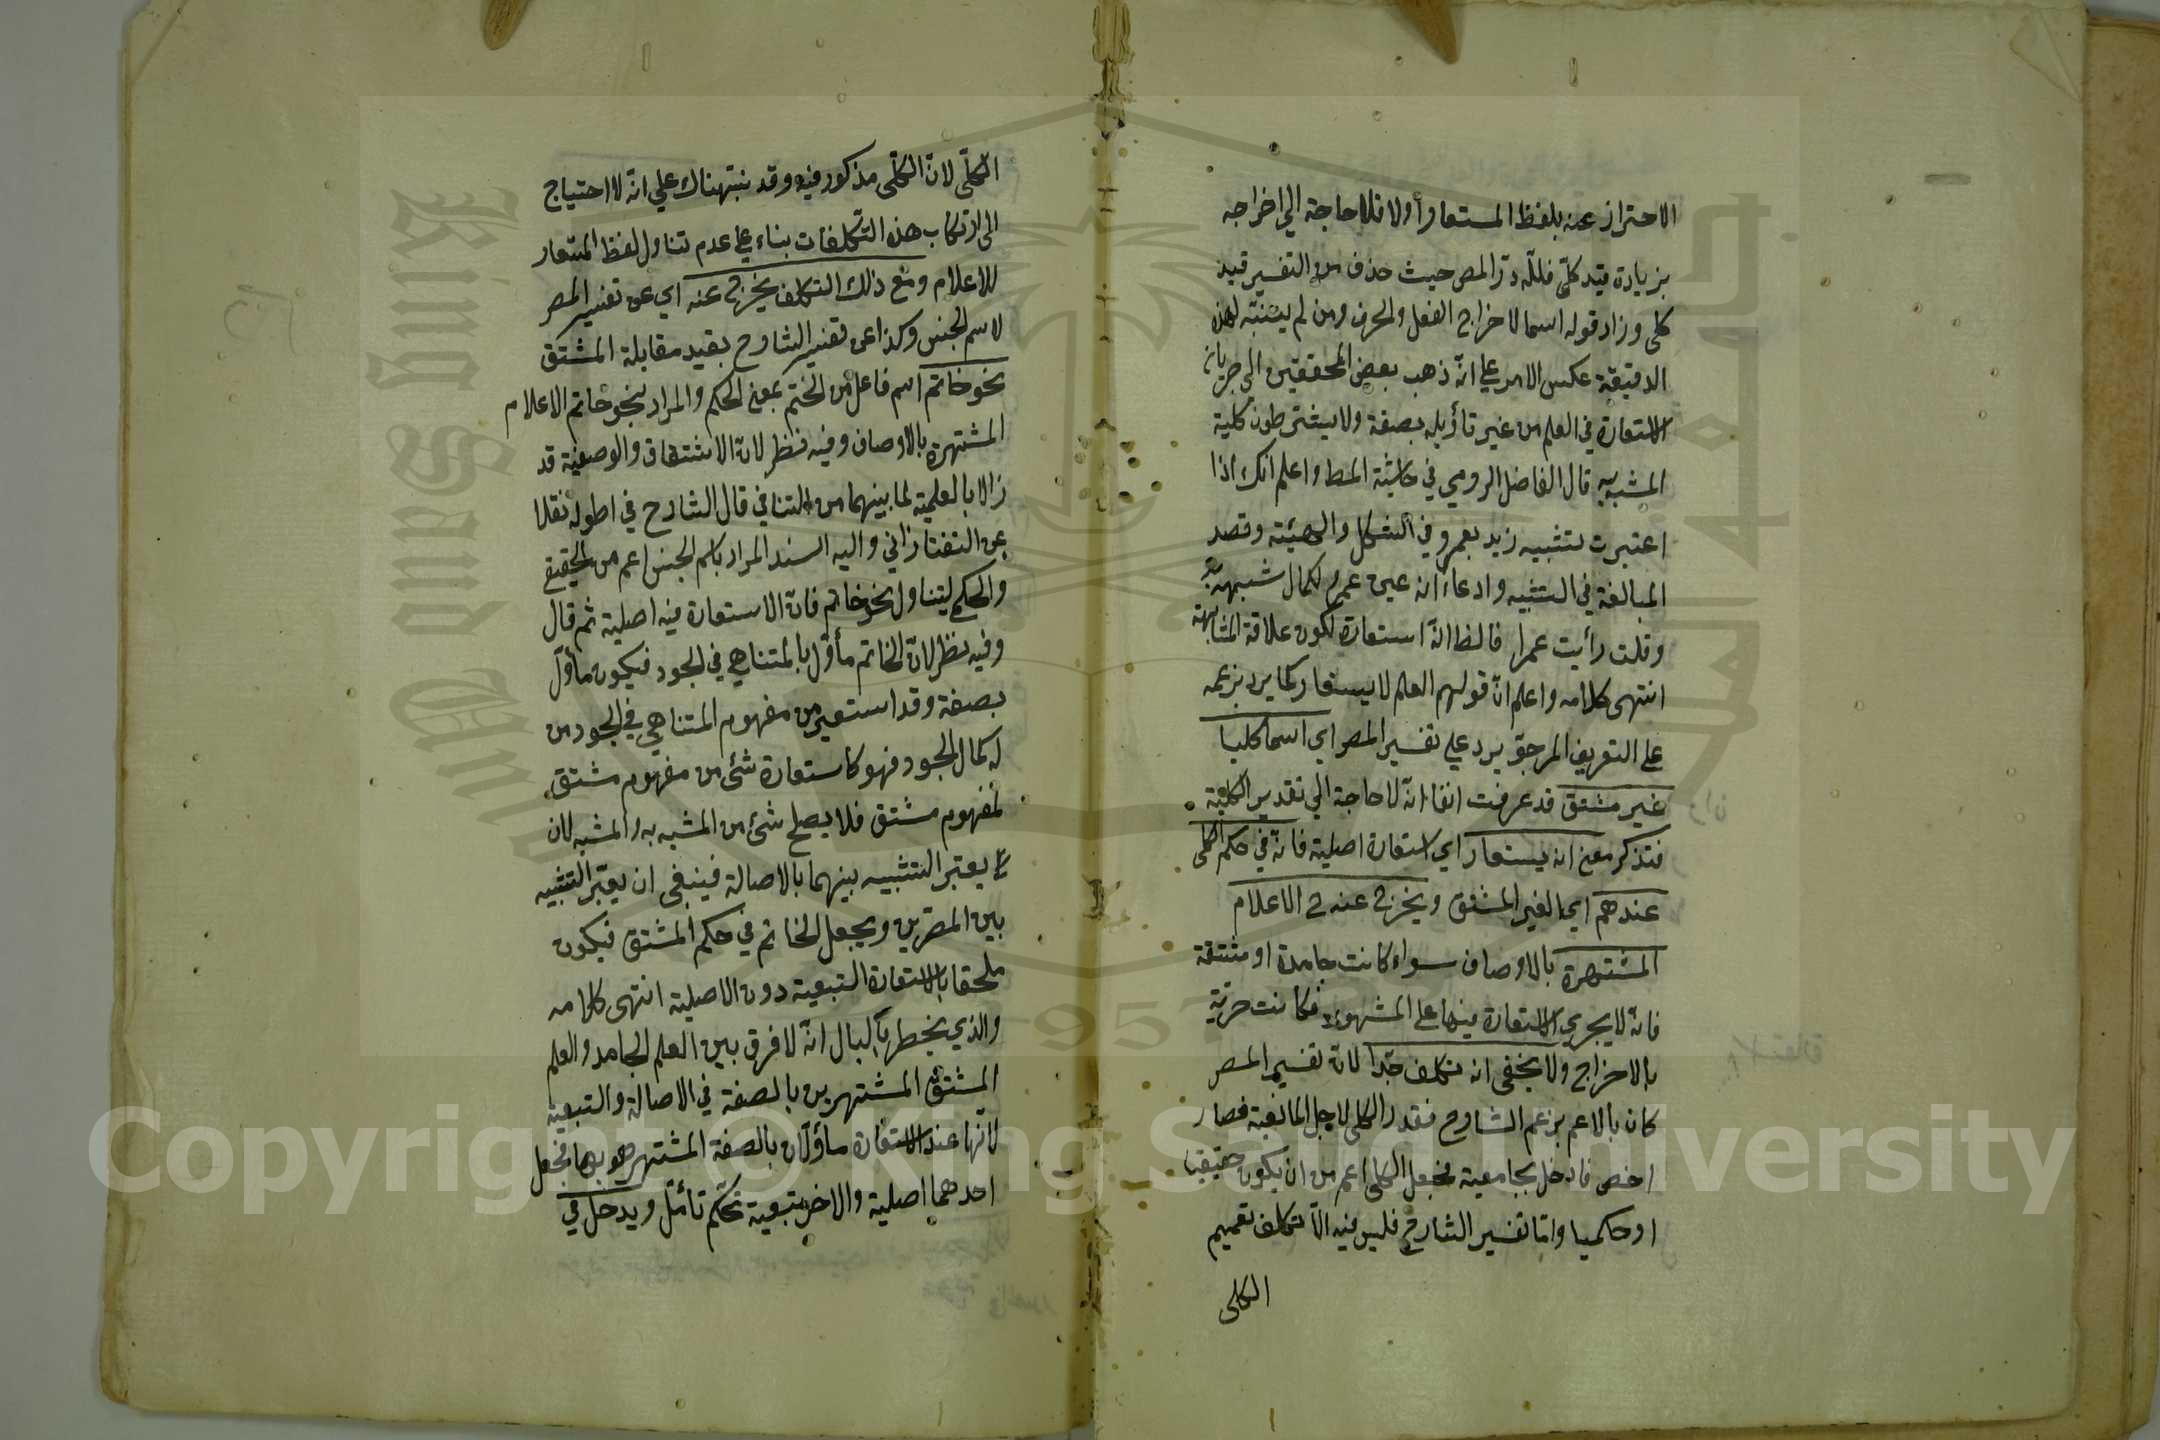 الاحتراز عنه بلفظ المستعار أولا فلا حاجة الي اخراجه
بزيادة قيد كلّي فللّه درّ المص حيث حذف من التفسير قيد
كلي وزاد قوله اسما لاخراج الفعل والحرف ومن لم يتنبّه لهذه
الدقيقة عكس الامر علي انّه ذهب بعض المحققين الي جريان
الاستعارة في العلم من غير تأويله بصفة ولا يشترطون كلية
المشبه به قال الفاضل الرومي في حاشية المط واعلم انك اذا
اعتبرت تشبيه زيد بعمرو في الشكل والهيئة وقصد
المبالغة في التشبيه وادعاء انه عين عمرو لكمال شبهه به
وقلت رأيت عمرا فالظ انّه استعارة لكون علاقة المشابهة
انتهى كلامه واعلم انّ قولهم العلم لا يستعار كما يرد بزعمه
على التعريف المرجوّ يرد علي تفسير المص اي اسما كليا
غير مشتق قد عرفت انفا انّه لا حاجة الي تقدير الكلية
فتذكر معنى انه يستعار اي استعارة اصلية فانّه في حكم الكلى
عندهم اي الغير المشتق ويخرج عنه ح الاعلام
المشتهرة بالاوصاف سواء كانت جامدة او مشتقة
فانّه لا يجري الاستعارة فيها على المشهور فكانت حريّة
بالاخراج ولا يخفى انه تكلف جدّا لانّ تفسير المص
كان بالاعم بزعم الشارح فقدر الكلى لاجل المانعية فصار
اخص فادخل بجامعية بجعل الكلى اعم من ان يكون حقيقيا
او حكميا وامّا تفسير الشارح فليس فيه الّا تكلف تعميم
الكلى
الكلّى لانّ الكلّى مذكور فيه وقد نبّهناك علي انّه لا احتياج
الى ارتكاب هذه التكلفات بناء علي عدم تناول لفظ المستعار
للاعلام ومع ذلك التكلف يخرج عنه اي عن تفسير المص
لاسم الجنس وكذا عن تفسير الشارح بقيد مقابلة المشتق
نحو خاتم اسم فاعل من الختم بمعنى الحكم والمراد بنحو خاتم الاعلام
المشتهرة بالاوصاف وفيه نظر لانّ الاشتقاق والوصفية قد
زالا بالعلمية لما بينهما من التنافي قال الشارح في اطوله نقلا
عن التفتازاني واليه السند المراد باسم الجنس اعم من الحقيقي
والحكمي ليتناول نحو خاتم فانّ الاستعارة فيه اصلية ثم قال
وفيه نظر لانّ الخاتم مأوّل بالمتناهي في الجود فيكون مأوّل
بصفة وقد استعير من مفهوم المتناهي في الجود من
له كمال الجود فهو كاستعارة شئ من مفهوم مشتق
لمفهوم مشتق فلا يصلح شئ من المشبه به والمشبه لان
يعتبر التشبيه بينهما بالاصالة فينبغي ان يعتبر التشبيه
بين المصدرين ويجعل الخاتم في حكم المشتق فيكون
ملحقا بالاستعارة التبعية دون الاصلية انتهى كلامه
والذي يخطر بالبال انّه لا فرق بين العلم الجامد والعلم
المشتق المشتهرين بالصفة في الاصالة والتبعية
لانّهما عند الاستعارة مأوّلان بالصفة المشتهر هو بهما فجعل
احدهما اصلية والاخر تبعية تحكّم تأمّل ويدخل في
Copyright © King Saud University
King Saud University
1957